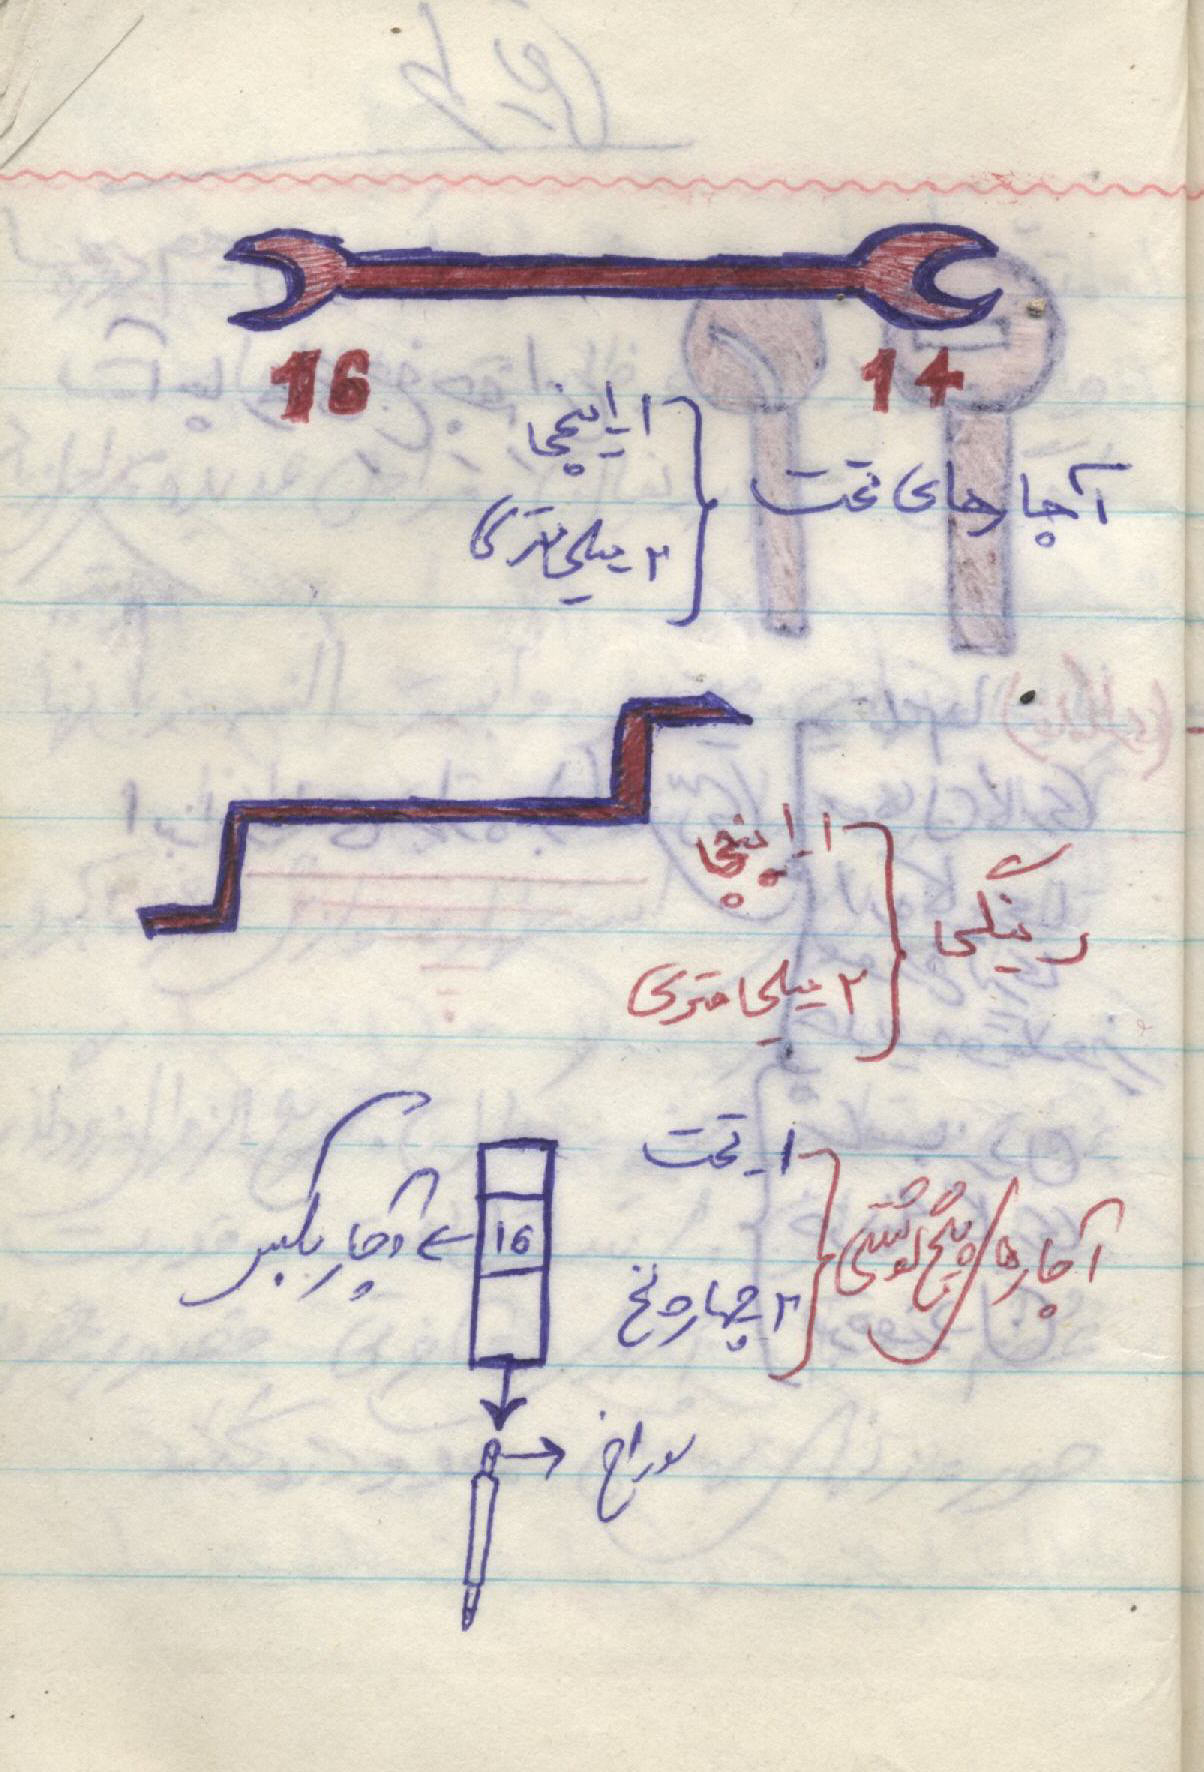 16 14
آچارهای تخت
۱ـ اینچی
۲ میلی‌متری
رینگی
۱ـ اینچی
۲ میلی‌متری
آچارها پیچ گوشتی
۱ـ تخت
۲ چهار
16
آچار بکس
سوراخ